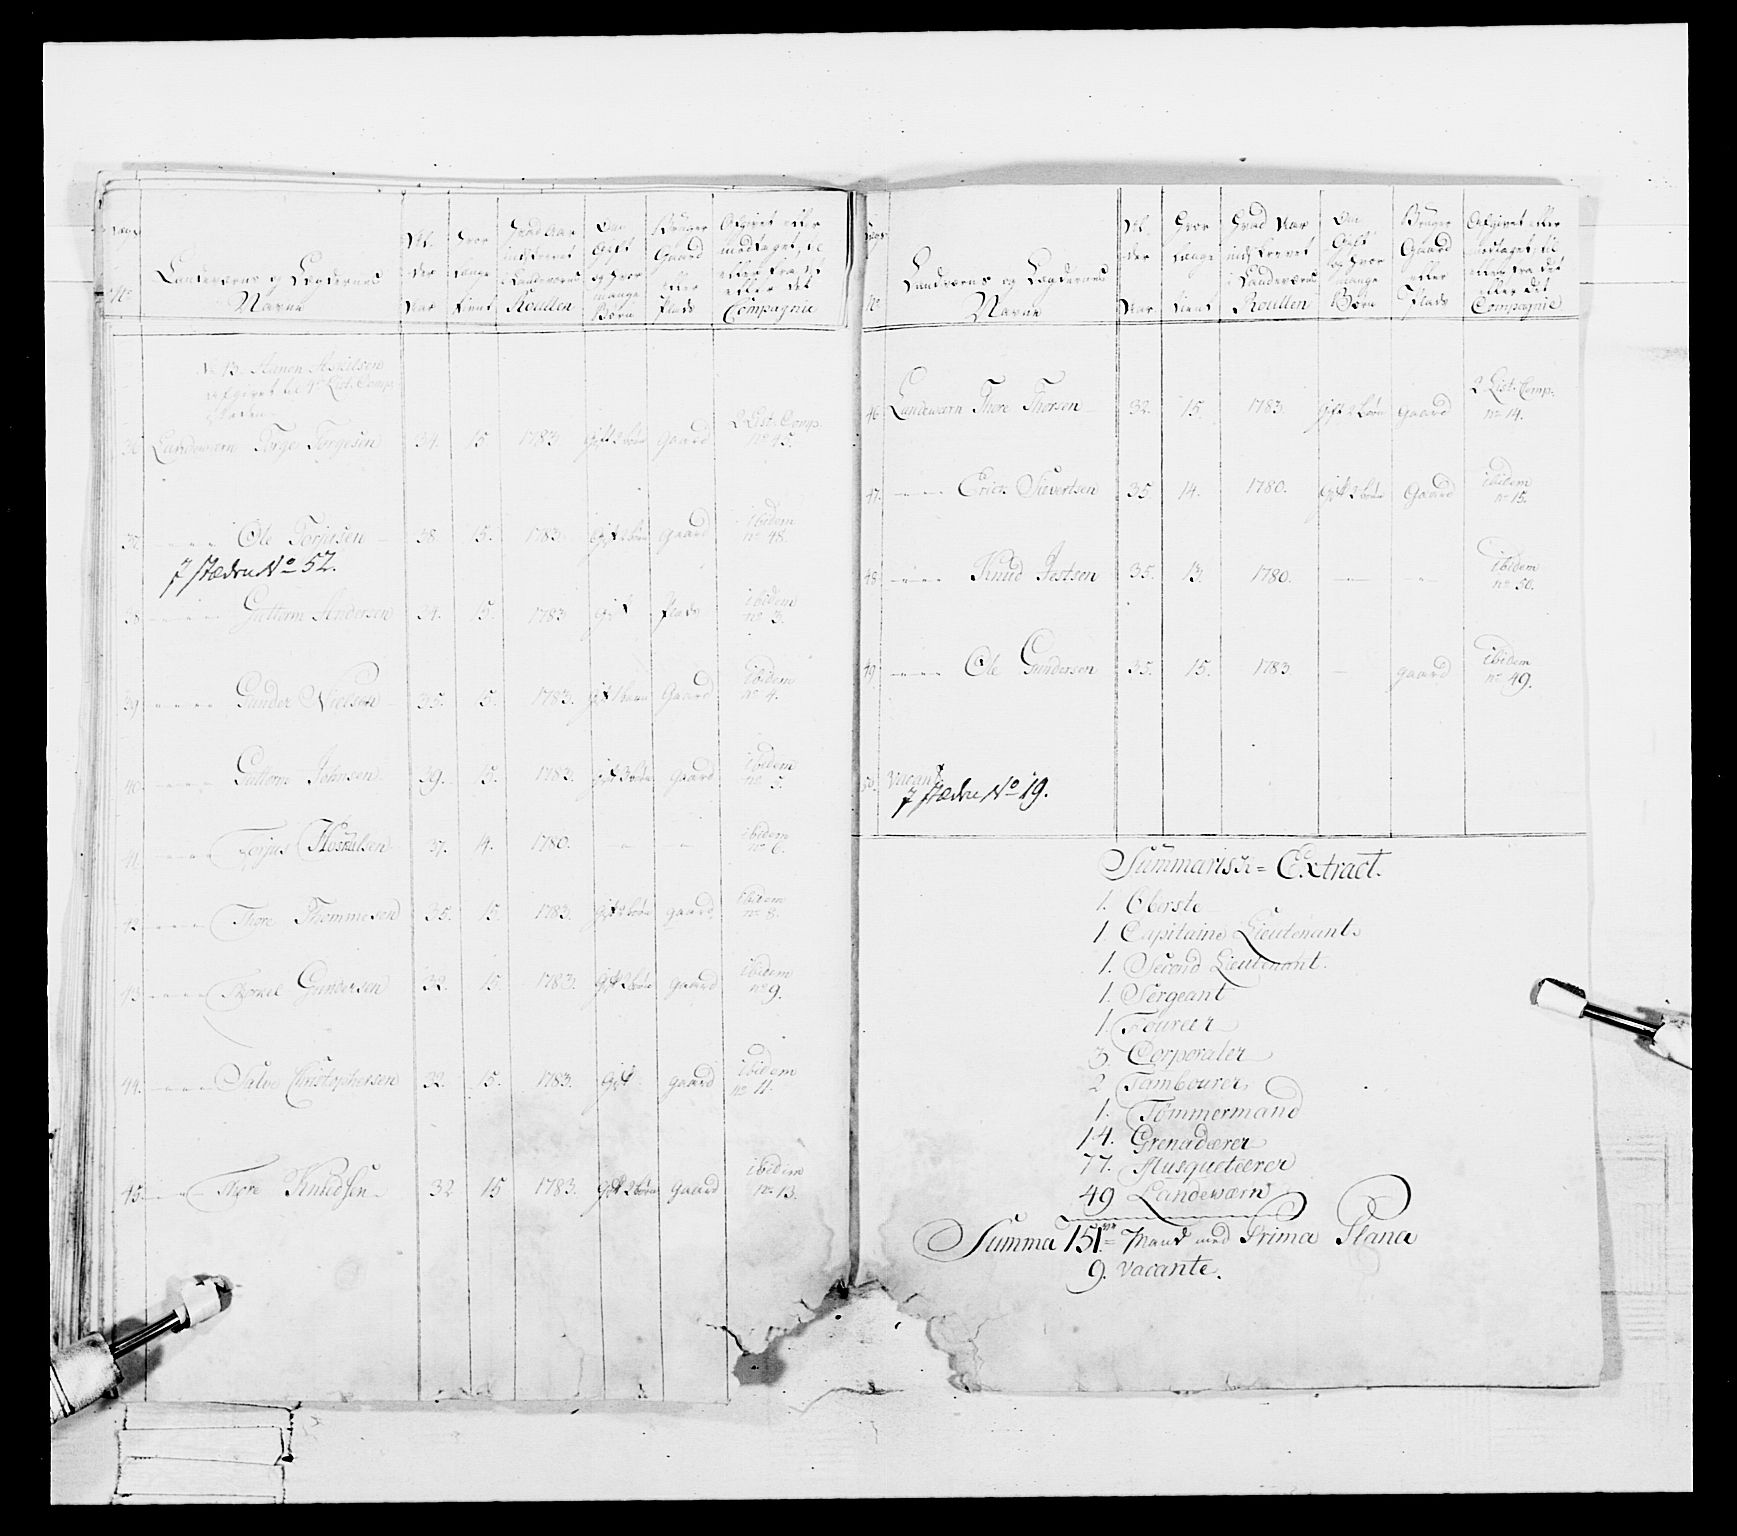 Landværns og Lægdernes
Navne
Al-
der
Aar
Hvor
længe
tient
Hvad Aar
indskrevet
i Landværns
Roullen
Om
Gift
og hvor
mange
Børn
Bruger
Gaard
eller
Plads
Afgivet eller
modtaget, til
eller fra det
eller det
Compagnie
No 13. Aanon Askilsen
afgivet til 1te List. Comp.
36. Landeværn Torge Torgesen 34. 15 1783 Gift 2 børn gaard 2 List. Comp. no 45.
37. Ole Torjusen 38. 15. 1783. Gift 2 børn gaard ibidem no 48.
I Stæden No 52.
38. Guttorm Andersen 34. 15. 1783 Gift Plads ibidem no 3.
39. Gunder Nielsen 35. 15. 1783. Gift 1 barn Gaard ibidem no 4.
40. Guttorm Johnsen 39. 15. 1783. Gift 3 børn gaard ibidem no 5.
41. Torjus 37. 14. 1780. - - ibidem no 6.
42. Thore Thommesen 35. 15. 1783. Gift 2 børn gaard ibidem no 8.
43. Thorkel Gundersen 32. 15. 1783. Gift 2 børn gaard ibidem no 9.
44. Salve Christophersen 32. 15. 1783. Gift gaard ibidem no 11.
45. Thore Knudsen 32 15 1783. Gift 2 børn gaard ibidem no 13.
No
Landværns og Lægdernes
Navne
Al-
der
Aar
Hvor
længe
tient
Hvad Aar
indskrevet
i Landværns
Roullen
Om
Gift
og hvor
mange
Børn
Bruger
Gaard
eller
Plads
Afgivet eller
modtaget, til
eller fra det
eller det
Compagnie
46. Landeværn Thore Thorsen 32. 15. 1783. Gift 2 børn gaard 2 List. Comp. no 14.
47. Erich Sievertsen 35. 14. 1780. Gift 2 børn Gaard ibidem no 15.
48. Knud Jostsen 35. 13. 1780. - - ibidem no 50.
49. Ole Gundersen 35. 15. 1783. - gaard ibidem no 49.
50. Vacant
I Stæden No 19.
Summarisk = Extract.
1. Oberste
1. Capitaine Lieutenant.
1. Second Lieutenant.
1. Sergeant
1. Fourer
3. Corporaler
2 Tambourer
1. Tømmermand
14. Grenaderer
77. Musqueterer
49 Landeværn
Summa 151 Mand med Prima Plana
9. vacante.